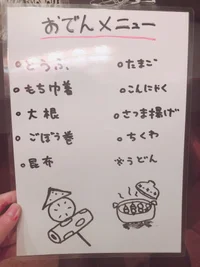 おでんメニュー
○とうふ
○もち巾着
○大根
○ごぼう巻
○昆布
○たまご
○こんにゃく
○さつま揚げ
○ちくわ
※うどん